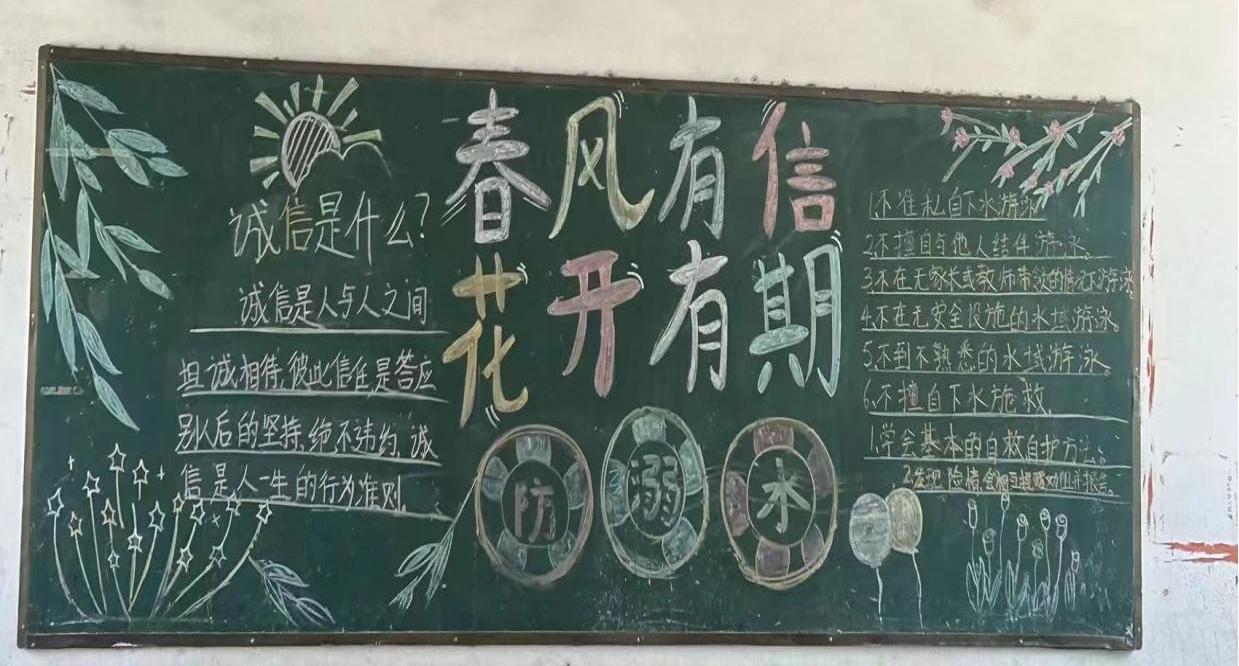 诚信是什么?
诚信是人与人之间
坦诚相待,彼此信任是答应
别人后的坚持,绝不违约,诚
信是人一生的行为准则.
春风有信
花开有期
防溺水
1.不准私自下水游泳
2.不擅自与他人结伴游泳.
3.不在无家长或教师带领的情况下游泳
4.不在无安全设施的水域游泳。
5.不到不熟悉的水域游泳.
6.不擅自下水施救.
1.学会基本的自救自护方法。
2.发现险情会相互提醒劝阻并报告.